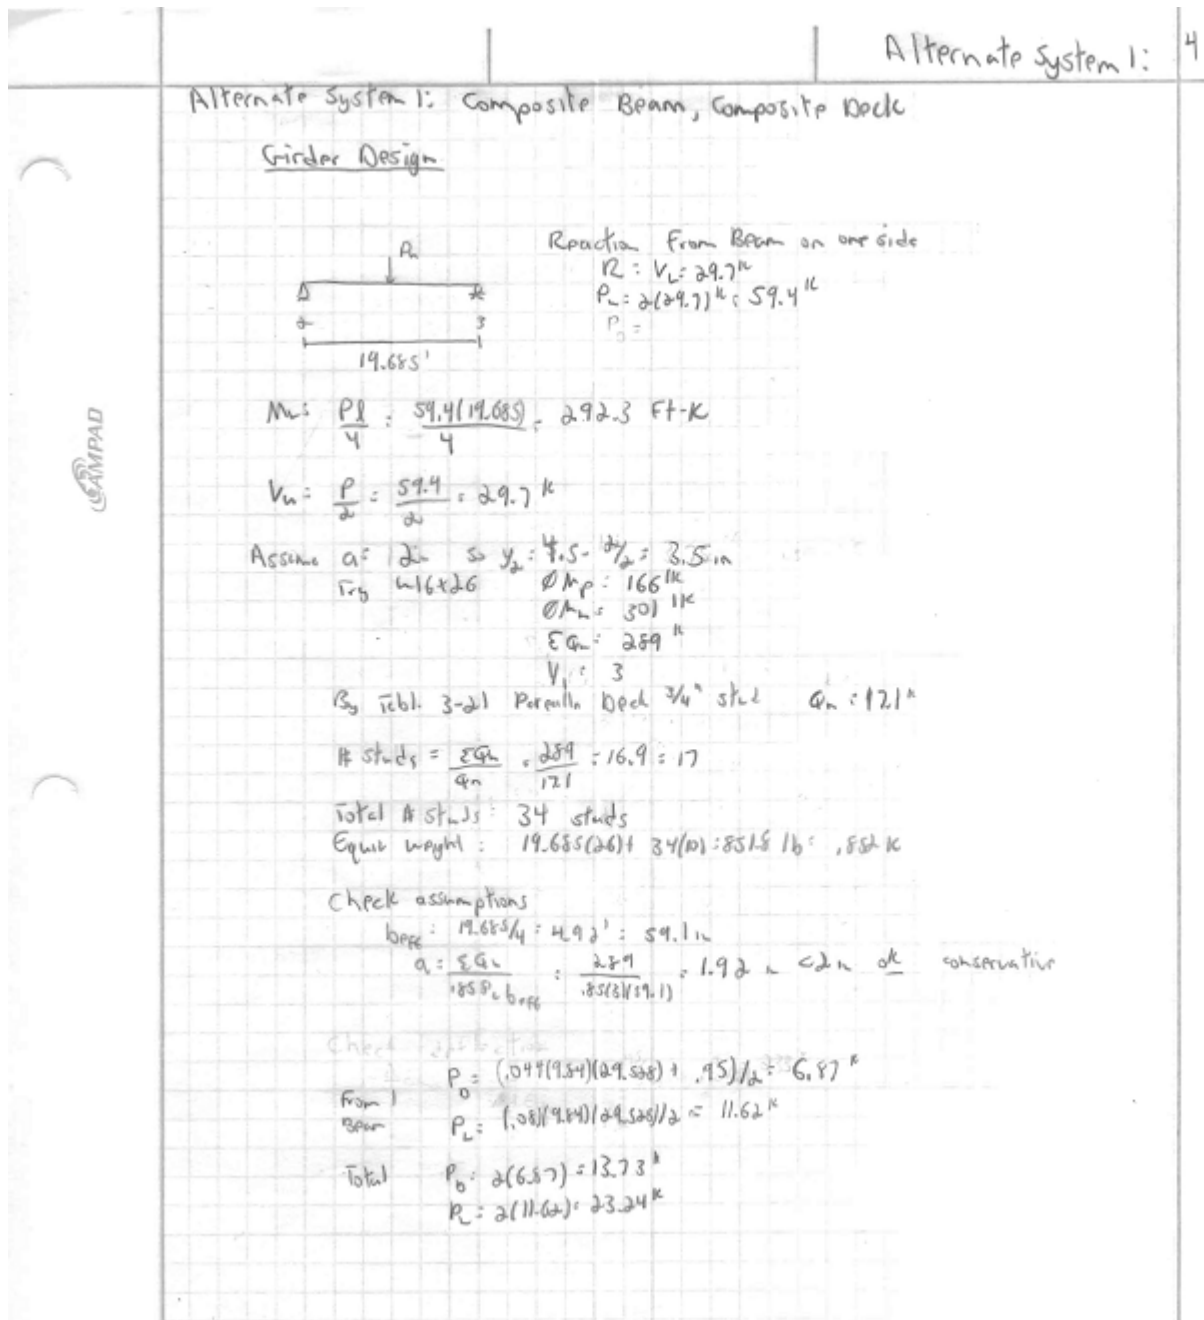 Alternate System 1: 4
Alternate System 1: Composite Beam, Composite Deck
Girder Design
Pu
Reaction From Beam on one side
R = VL = 29.7k
Pu = 2(29.7)k = 59.4k
PD =
2 3
19.685'
Mu = Pl/4 = 59.4(19.685)/4 = 292.3 Ft-K
Vu = P/2 = 59.4/2 = 29.7k
Assume a = 2in so y2 = 4.5 - 2/2 = 3.5in
Try W16x26 ØMp = 166 'k
ØMn = 301 'k
ΣQn = 289 k
Y1 = 3
By Tabl. 3-21 Deck 3/4" stud Qn = 17.1k
# studs = ΣQn/Qn = 289/17.1 = 16.9 = 17
Total # studs = 34 studs
Equiv weight = 19.685(26) + 34(10) = 851.8 lb = .852 k
Check assumptions
beff = 19.685/4 = 4.92' = 59.1in
a = ΣQn/.85f'c beff = 289/.85(3)(59.1) = 1.92in <2in ok conservative
Check
From 1 Beam
PD = (.044(9.84)(29.528) + .95)/2 = 6.87k
PL = (.08)(9.84)(29.528)/2 = 11.62k
Total PD = 2(6.87) = 13.73k
PL = 2(11.62) = 23.24k
AMPAD